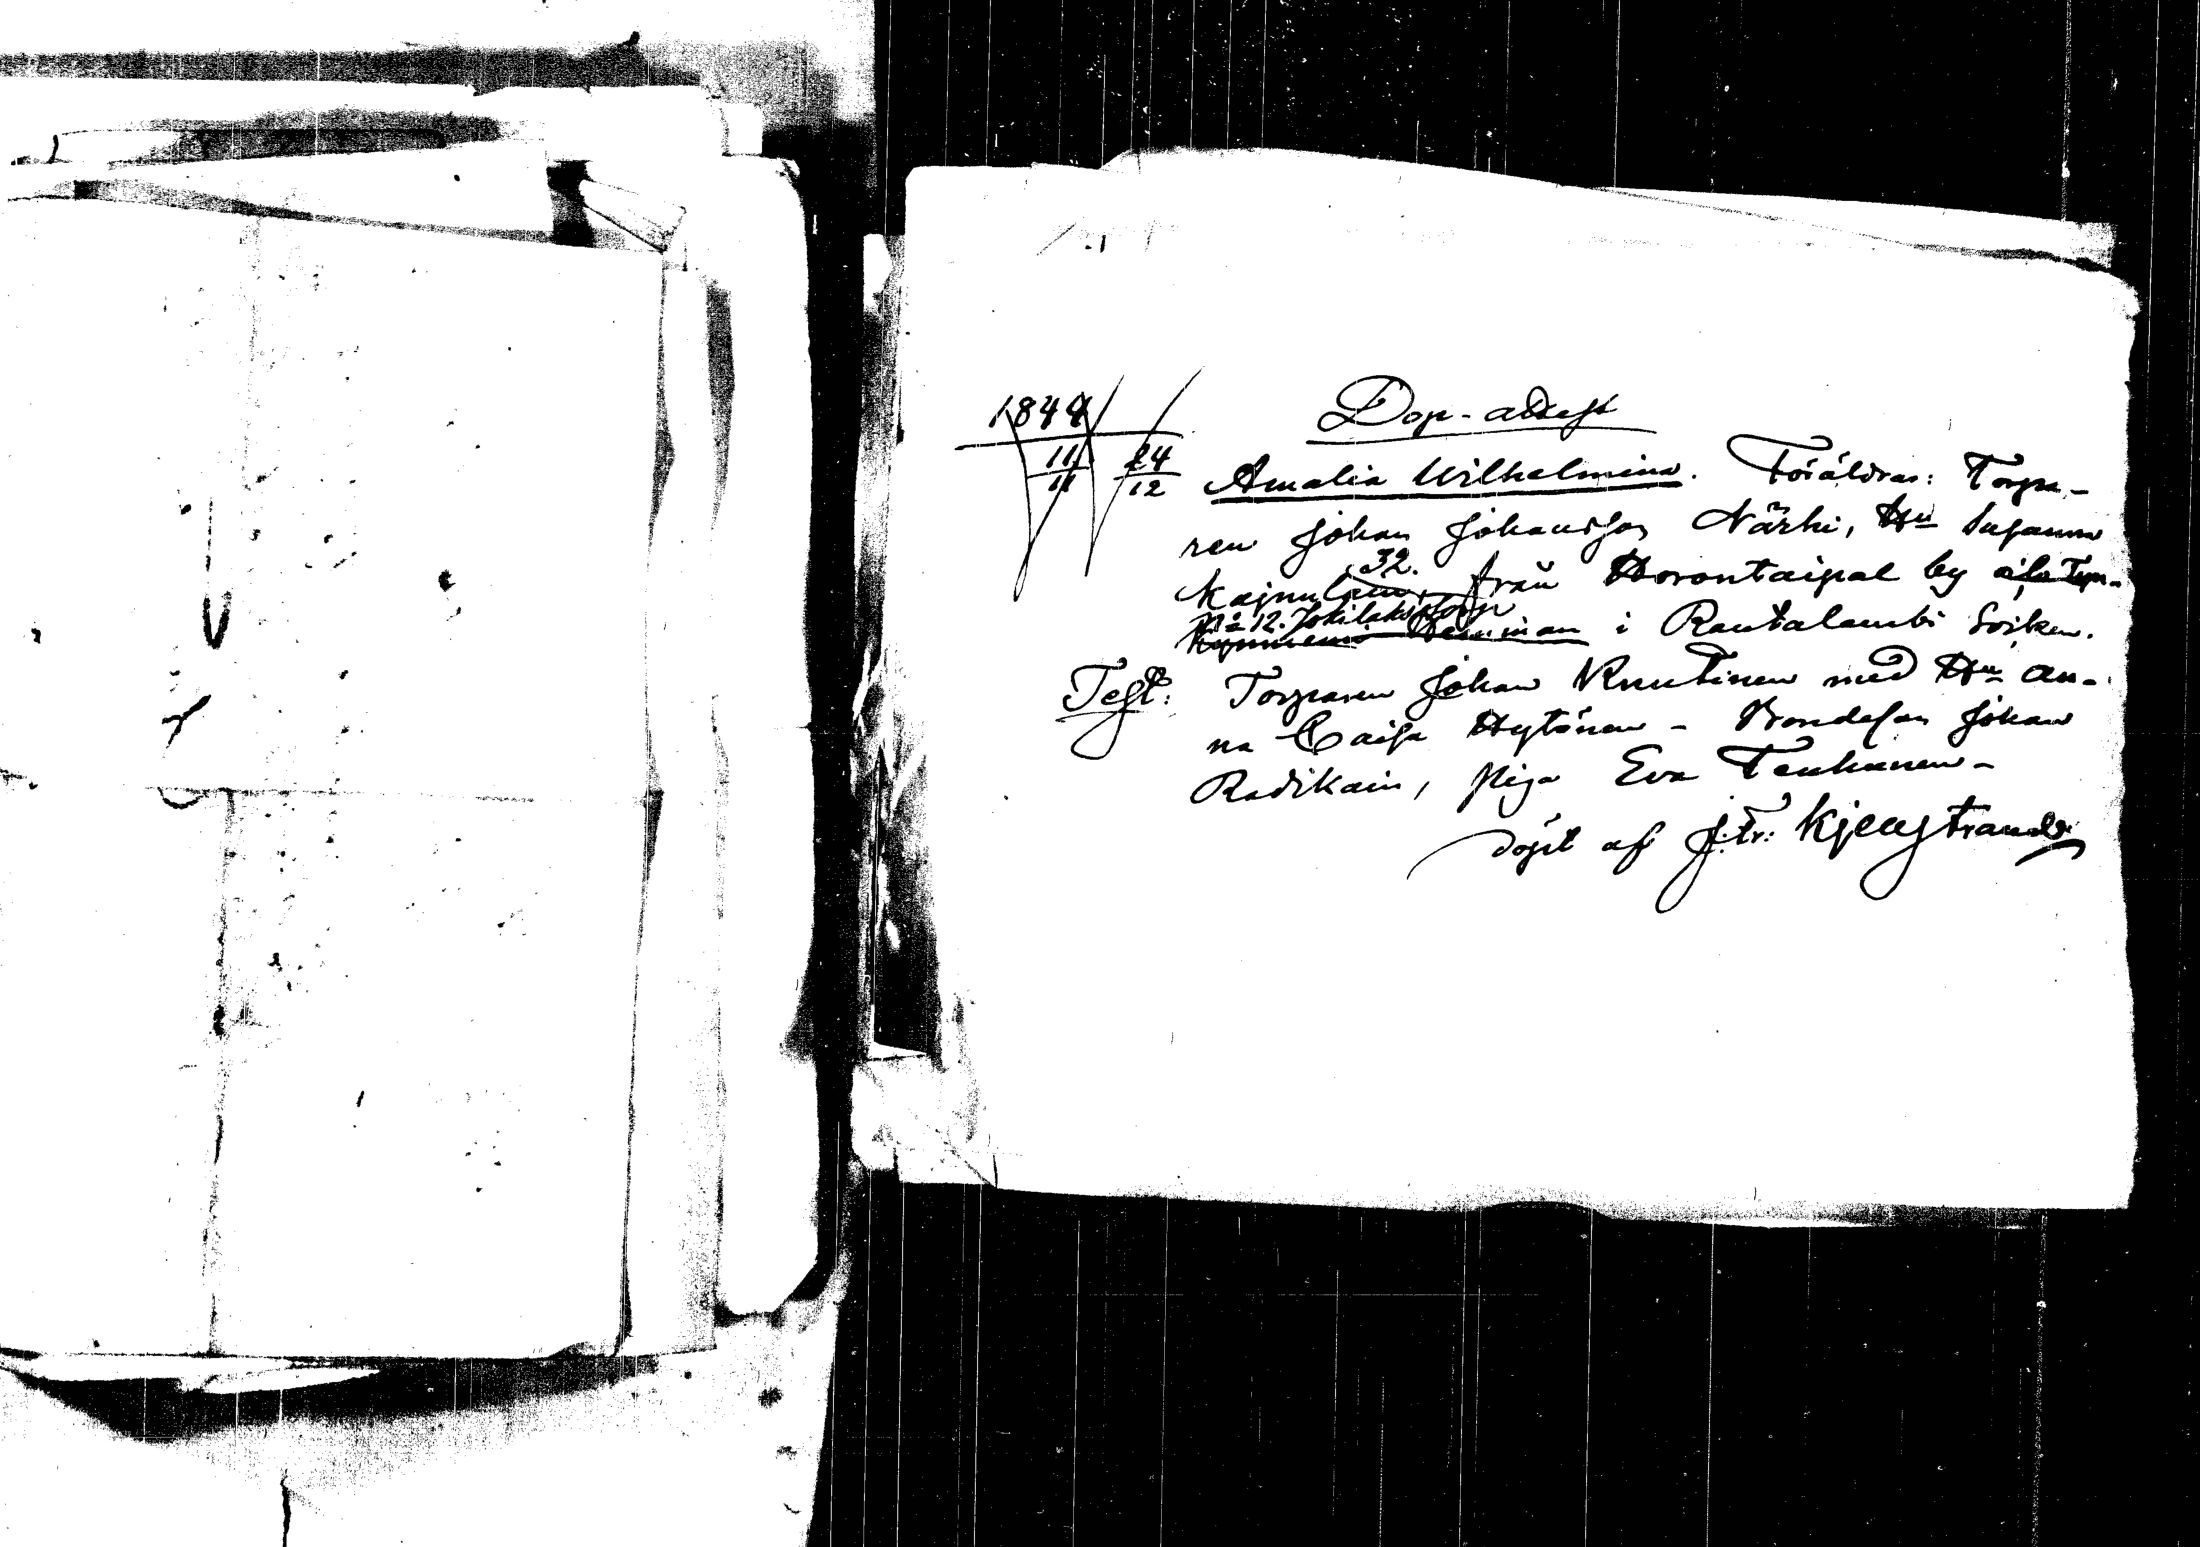 1844
Dop-attest
11/11 24/12 Amalia Wilhelmina. Föräldrar: Torpa-
ren Johan Johansson Närhi, Hu Susanna
Kajnulainen, 32. från Horontaipal by
No 12. Jokilaks torp
Hemman i Rautalambi Socken.
Test: Torparen Johan Knutinen med Hu An-
na Caisa Hytönen - Bondeson Johan
Radikain, Piga Eva Tenhunen -
döpt af J. Fr: Kjellstrand